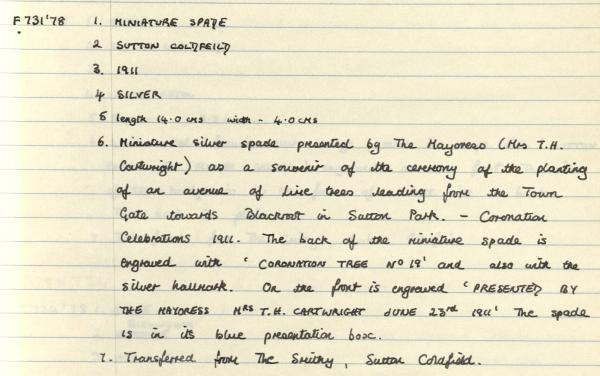 F731'78 1. MINIATURE SPADE
2 SUTTON COLDFEILD
3. 1911
4 SILVER
5 length 14.0 cms width - 4.0 cms
6. Miniature silver spade presented by The Mayoress (Mrs T.H.
Cartwright) as a souvenir of the ceremony of the planting
of an avenue of Lime trees leading from the Town
Gate towards Blackroot in Sutton Park. - Coronation
Celebrations 1911. The back of the miniature spade is
engraved with 'CORONATION TREE No 19' and also with the
silver hallmark. On the front is engraved 'PRESENTED BY
THE MAYORESS MRS T.H. CARTWRIGHT JUNE 23rd 1911' The spade
is in its blue presentation box.
7. Transferred from The Smithy, Sutton Coldfield.